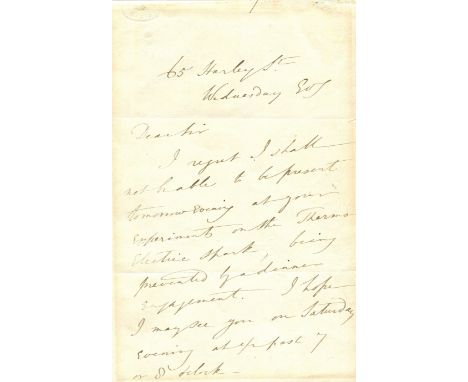 65 Harley St
Wednesday Evg
Dear Sir
I regret I shall
not be able to be present
tomorrow evening at your
experiments on the Thermo
Electric spark, being
prevented by a dinner
engagement. I hope
I may see you on Saturday
evening at ½ past 7
or 8 o'clock -